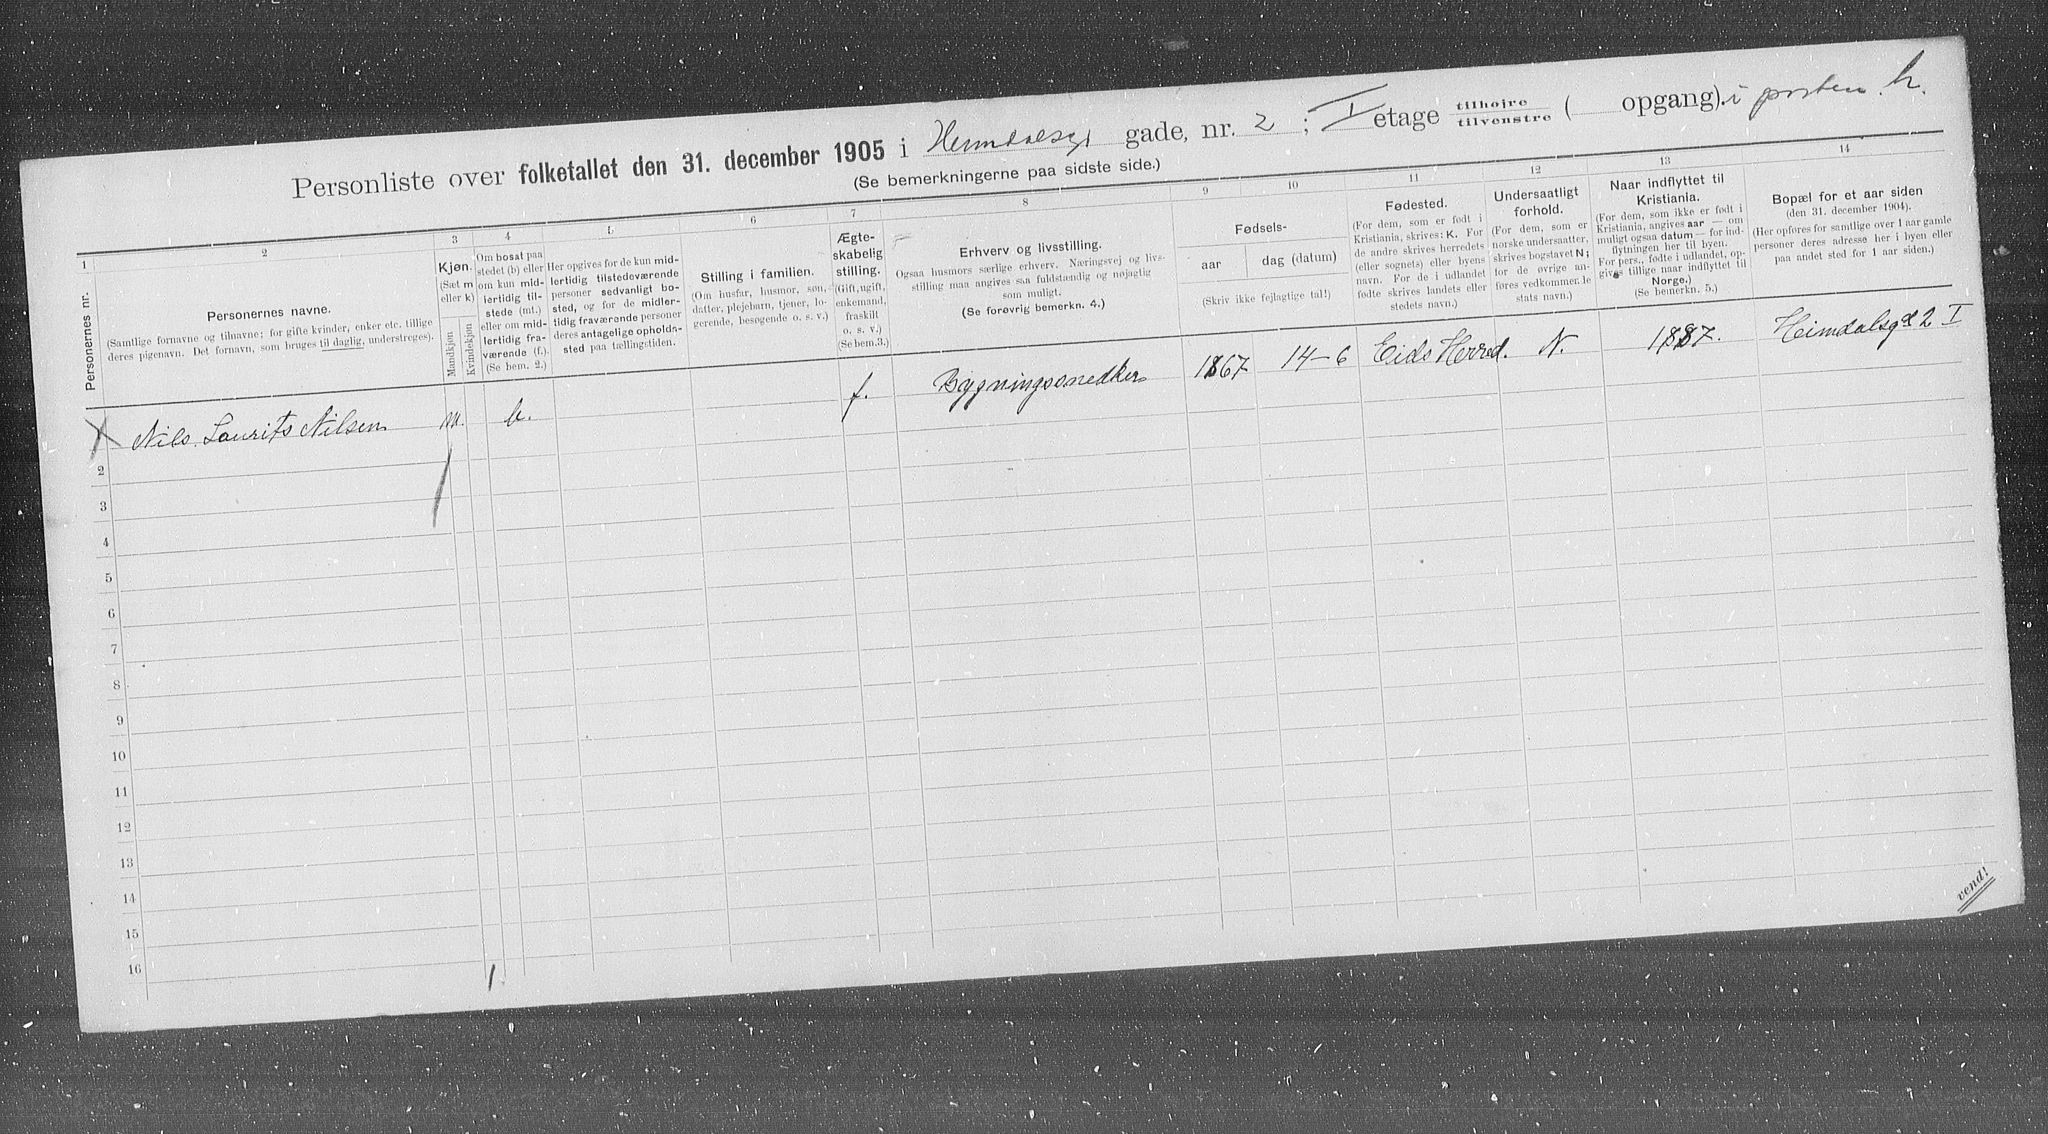 Personliste over folketallet den 31. december 1905 i Heimdalsgt gade, nr. 2 ; I etage tilhøjre / tilvenstre ( opgang). i porten h.
(Se bemerkningerne paa sidste side.)
1 2 3 4 5 6 7 8 9 10 11 12 13 14
Personernes nr.
Personernes navne.
(Samtlige fornavne og tilnavne; for gifte kvinder, enker etc. tillige
deres pigenavn. Det fornavn, som bruges til daglig, understreges).
Kjøn.
(Sæt m
eller k)
Mandkjøn
Kvindekjøn
Om bosat paa
stedet (b) eller
om kun mid-
lertidig til-
stede (mt.)
eller om mid-
lertidig fra-
værende (f.)
(Se bem. 2.)
Her opgives for de kun mid-
lertidig tilstedeværende
personer sedvanlig bo-
sted, og for de midler-
tidig fraværende personer
deres antagelige opholdn-
sted paa tællingstiden.
Stilling i familien.
(Om husfar, husmor, søn,
datter, plejebarn, tjener, lo-
gerende, besøgende o. s. v.)
Ægte-
skabelig
stilling.
(Gift, ugift,
enkemand,
fraskilt
o. s. v.)
(Se bem.3.)
Erhverv og livsstilling.
Ogsaa husmors særlige erhverv. Næringsvej og livs-
stilling maa angives saa fuldstændig og nøjagtig
som muligt.
(Se forøvrig bemerkn. 4.)
Fødsels-
aar
dag (datum)
(Skriv ikke fejlagtige tal!)
Fødested.
(For dem, som er født i
Kristiania, skrives: K. For
de andre skrives herredets
(eller sognets) eller byens
navn. For de i udlandet
fødte skrives landets eller
stedets navn.)
Undersaatligt
forhold.
(For dem, som er
norske undersaatter,
skrives bogstavet N;
for de øvrige an-
føres vedkommende
stats navn.)
Naar indflyttet til
Kristiania.
(For dem, som ikke er født i
Kristiania, angives aar — om
muligt ogsaa datum — for ind-
flytningen her til byen.
For pers., fødte i udlandet, op-
gives tillige naar indflyttet til
Norge.)
(Se bemerkn. 5.)
Bopæl for et aar siden
(den 31. december 1904).
(Her opføres for samtlige over 1 aar gamle
personer deres adresse her i byen eller
paa andet sted for 1 aar siden.)
1 Nils. Laurits Nilsen m. b. f. Bygningssnedker 1867 14-6 Eids Herred. N. 1887. Heimdalsgd 2 I
2
3
4
5
6
7
8
9
10
11
12
13
14
15
16
1.
vend!